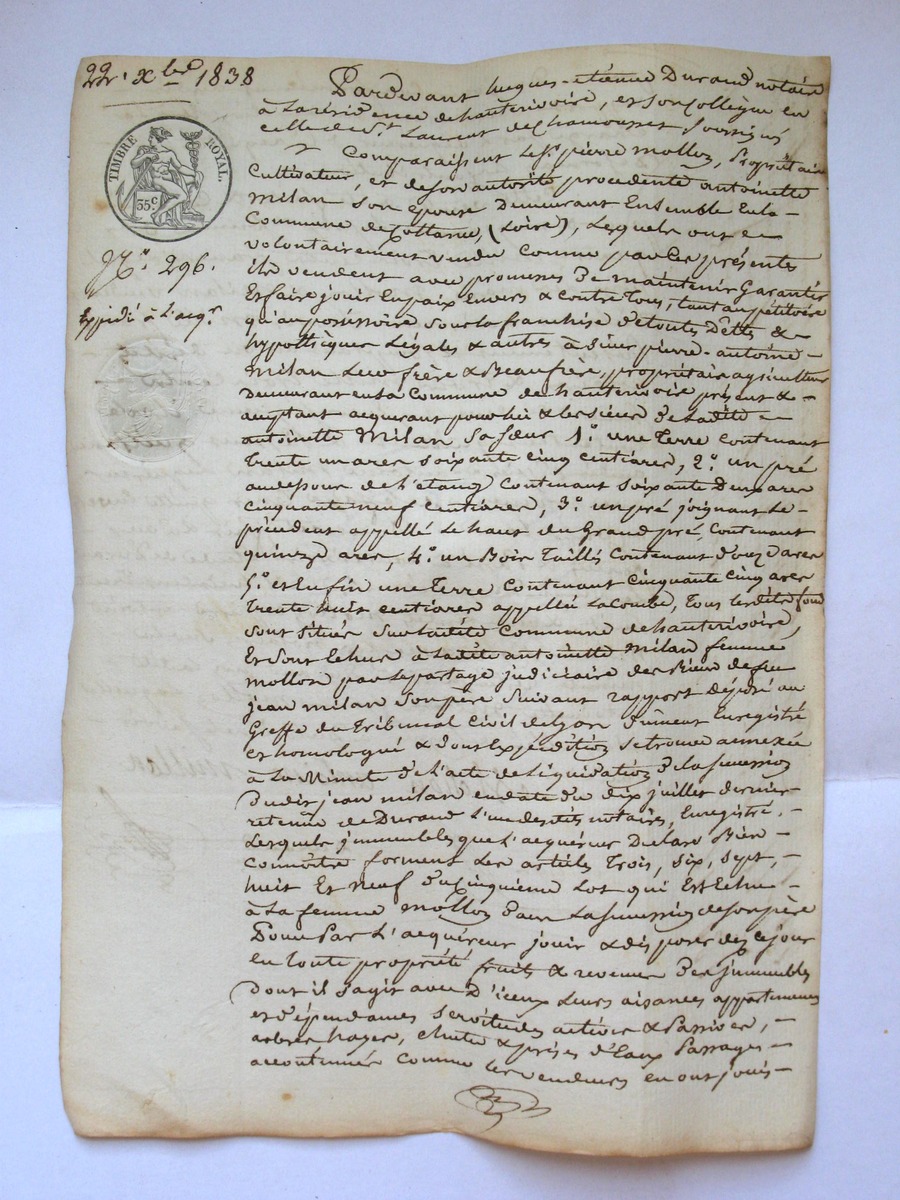 22. Xbre 1838
TIMBRE ROYAL.
35c
No. 296.
Expédié à l'acqr.
Pardevant hugues-étienne Durand notaire
à la résidence de hauterivoire, et son Collègue en
celle de St. Laurent de Chamousset Soussignés
Comparaissent le sr. pierre mollon, Propriétaire
Cultivateur, et de son autorité procédente antoinette
Milan son épouse Demeurant Ensemble En la
Commune de Cottance, (Loire), Lesquels ont
volontairement vendu comme par Ces présentes
ils vendent avec promesses De maintenir Garantir
Et faire jouir En paix Envers & contre Tous, tant au pétitoire
qu'au possessoire sous la franchise de toutes Dettes &
hypothèques Légales & autres à Sieur pierre-antoine
Milan Leur frère & Beaufrère, propriétaire agriculteur
Demeurant en la Commune de hauterivoire présent &
acceptant acquerant pour lui & les siens De Ladite
antoinette Milan Sa sœur 1o. une Terre contenant
Trente un ares soixante cinq centiares, 2o. un pré
au dessous de l'étang Contenant soixante Deux ares
Cinquante neuf centiares, 3o. un pré joignant le
précédent appellé le haut du Grand pré, Contenant
quinze ares, 4o. un Bois Taillis Contenant Douze ares
5o. et Enfin une Terre Contenant Cinquante Cinq ares
Trente huit centiares appellée Lacombe, Tous lesdits fond
sont situés Sur ladite Commune de hauterivoire,
Et sont Echus à Ladite antoinette Milan femme
mollon par le partage judiciaire des Biens de feu
jean milan son père Suivant rapport Déposé au
Greffe du Tribunal Civil de Lyon Dûment Enregistré
et homologué & dont Expédition se trouve annexée
à La Minute De l'acte de Liquidation De la succession
Dudit jean milan en date du dix juillet dernier
retenu de Durand L'un desdits notaires, Enregistré,
Lesquels jmmeubles que l'acquéreur Déclare Bien
Connoître forment Les articles Trois, six, sept,
huit Et Neuf du Cinquième Lot qui Est Echu
à La femme mollon Dans La succession de son père
Pour Par L'acquéreur jouir & disposer dez ce jour
en toute propriété fruits & revenus Des Jmmeubles
Dont il s'agit avec D'iceux Leurs aisances appartenances
et dépendances servitudes actives & Passives,
arbres hayes, chute & prises d'Eaux Passages
accoutumés Comme Les vendeurs en ont jouis